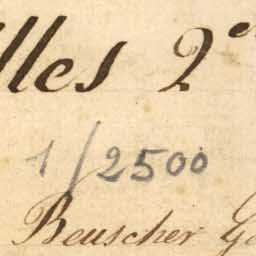 lles 2e
1/2500
Beuscher Gé